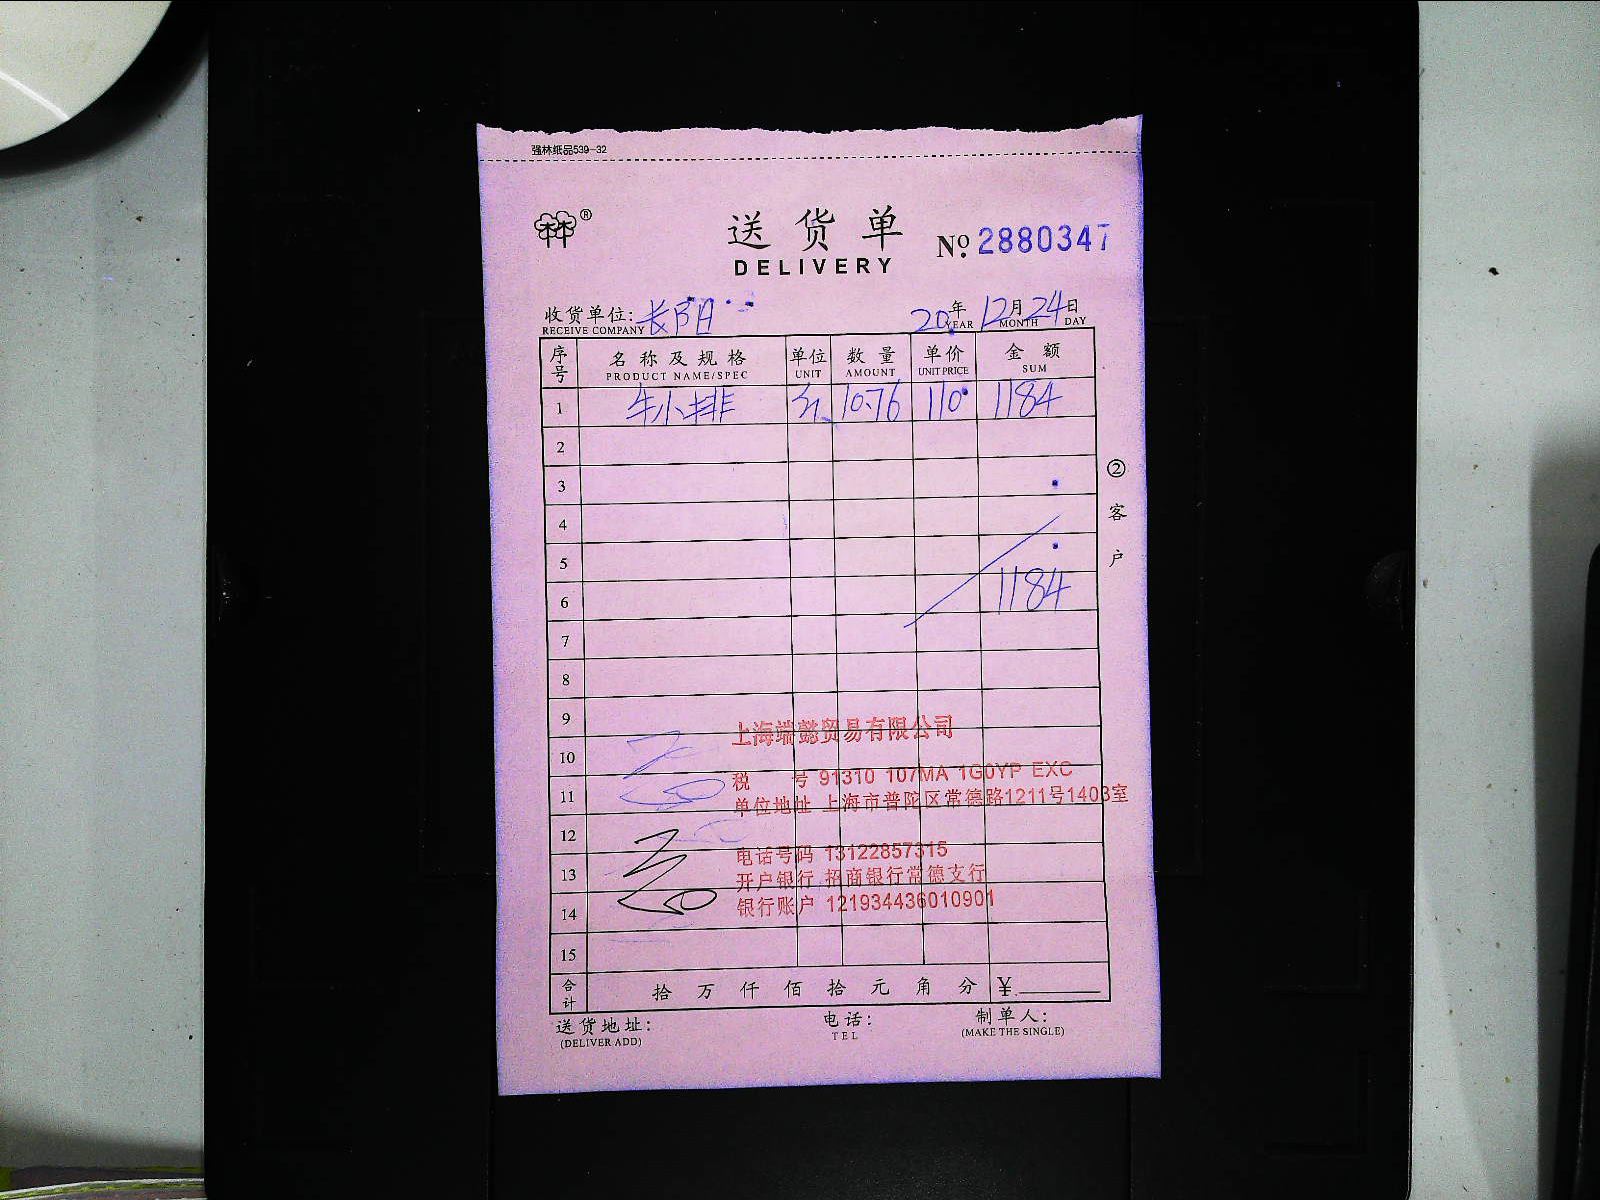 强林纸品539-32
林林®
送货单 № 2880347
DELIVERY
收货单位: 长阳 20年 12月 24日
RECEIVE COMPANY YEAR MONTH DAY
序号 名称及规格 单位 数量 单价 金额
PRODUCT NAME/SPEC UNIT AMOUNT UNIT PRICE SUM
1 牛小排 10.76 110 1184
2
3
4
5
6 1184
7
8
9
10
11
12
13
14
15
② 客户
上海端懿贸易有限公司
税 号 91310 107MA 1G0YP EXC
单位地址 上海市普陀区常德路1211号1403室
电话号码 13122857315
开户银行 招商银行常德支行
银行账户 121934436010901
合计 拾 万 仟 佰 拾 元 角 分 ¥
送货地址: 电话: 制单人:
(DELIVER ADD) TEL (MAKE THE SINGLE)